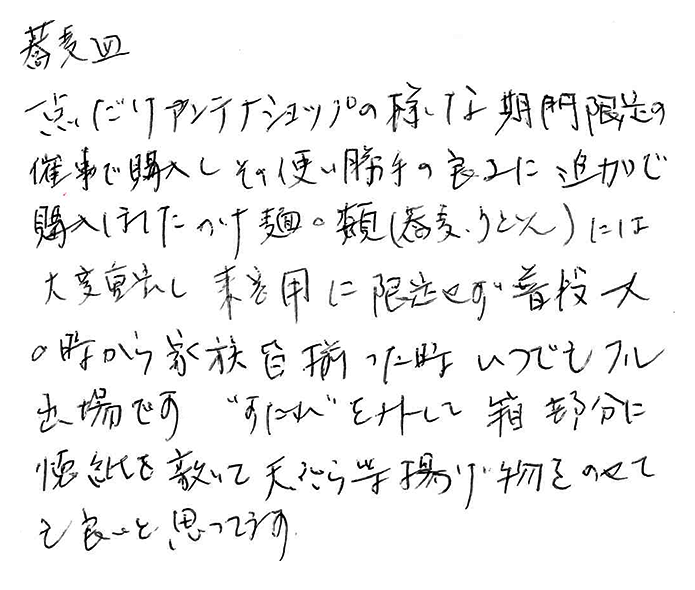 蕎麦皿
一点だけアンテナショップの様な期間限定の
催事で購入しその使い勝手の良さに追加で
購入しましたつけ麺の類(蕎麦、うどん)には
大変重宝し来客用に限定せず普段一人
の時から家族皆揃った時いつでもフル
出場です “すだれ”を外して箱部分に
懐紙を敷いて天ぷら等揚げ物をのせて
も良いと思ってます